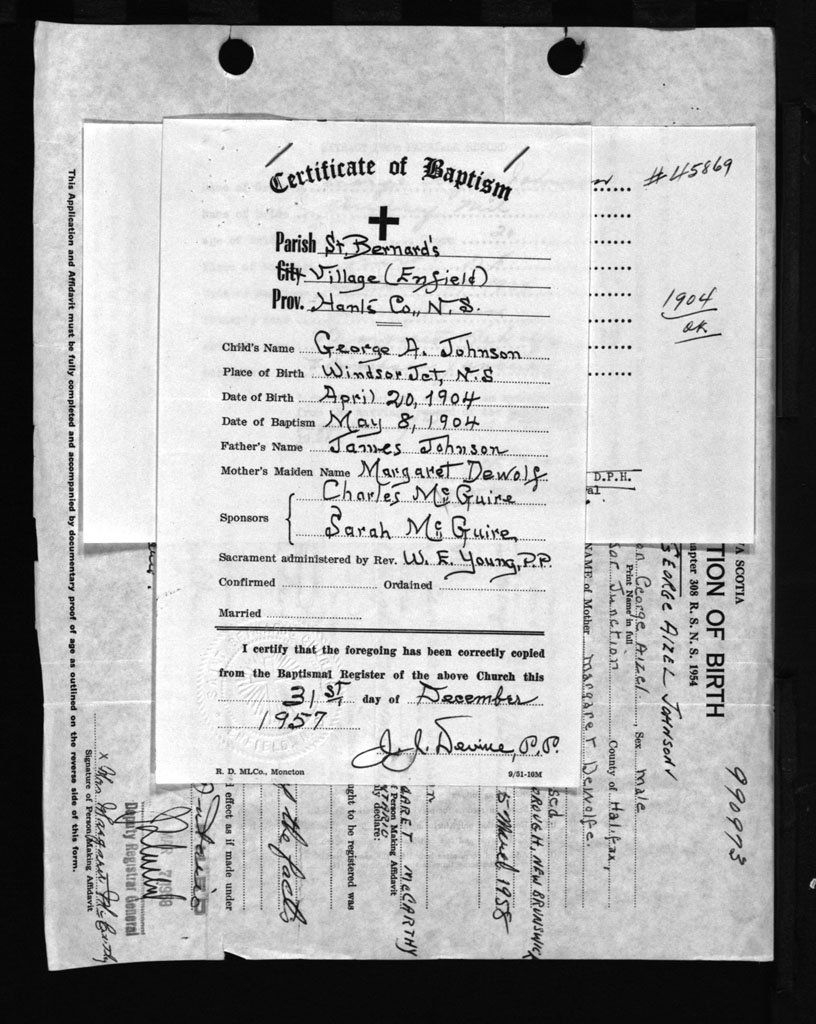 Certificate of Baptism
Parish St. Bernard's
City Village (Enfield)
Prov. Hants Co., N.S.
Child's Name George A. Johnson
Place of Birth Windsor Jct, N.S
Date of Birth April 20, 1904
Date of Baptism May 8, 1904
Father's Name James Johnson
Mother's Maiden Name Margaret Dewolf
Charles McGuire
Sponsors
Sarah McGuire
Sacrament administered by Rev. W. E. Young, P.P.
Confirmed Ordained
Married
I certify that the foregoing has been correctly copied
from the Baptismal Register of the above Church this
31st day of December
1957
J. J. Devine, P.P.
R. D. MLCo., Moncton 9/51-10M
#45869
1904
OK
D.P.H.
This Application and Affidavit must be fully completed and accompanied by documentary proof of age as outlined on the reverse side of this form.
A SCOTIA
apter 308 R. S. N. S. 1954
TION OF BIRTH
GEORGE AIZEL JOHNSON
990973
on George Aizel, Sex male
Print Name in full
sor Junction County of Halifax,
NAME of Mother Margaret Dewolfe.
OROUGH, NEW BRUNSWICK
5 March 1958
GARET McCARTHY
Person Making Affidavit
TARIO
ly declare:
ght to be registered was
the facts
l effect as if made under
Deputy Registrar General
x Mrs Margaret McCarthy
Signature of Person Making Affidavit